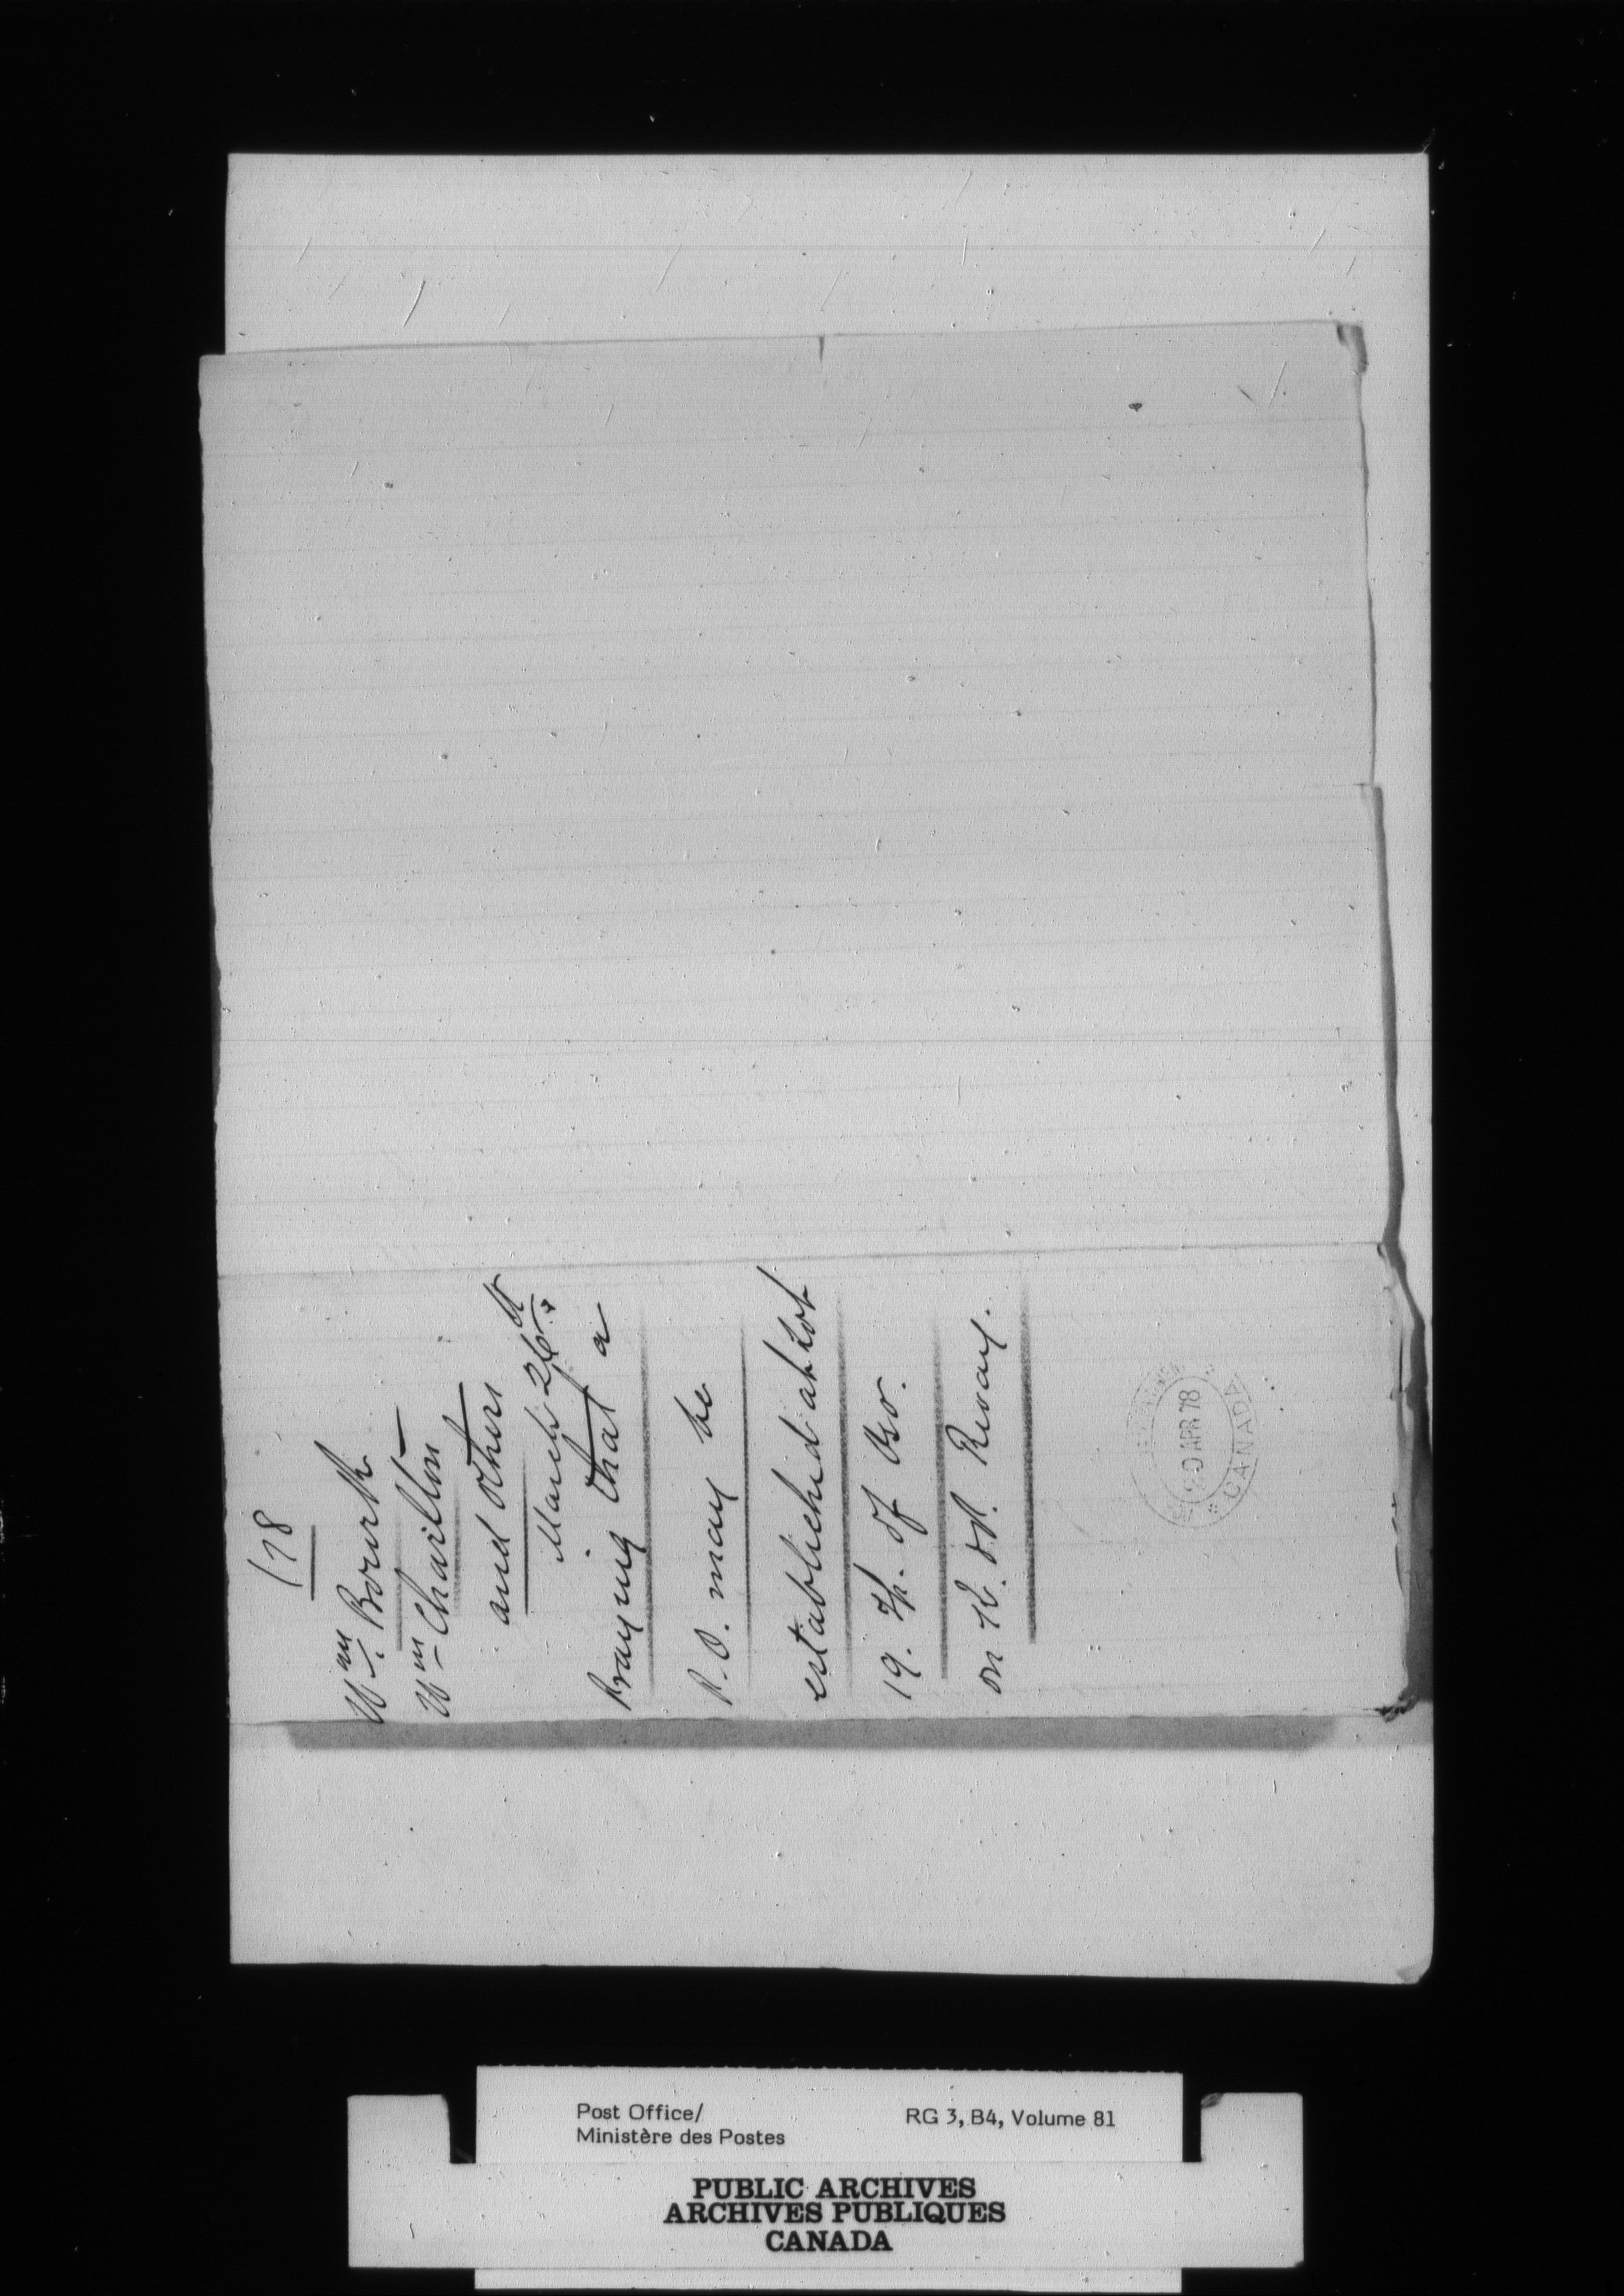 178
Wm. Bourk
Wm Charlton
and others
March 26th
Praying that a
P.O. may be
established at Lot
19. Tp. of Oso.
on K. & P. Railway.
20 APR 78
CANADA
Post Office/
Ministère des Postes
RG 3, B4, Volume 81
PUBLIC ARCHIVES
ARCHIVES PUBLIQUES
CANADA